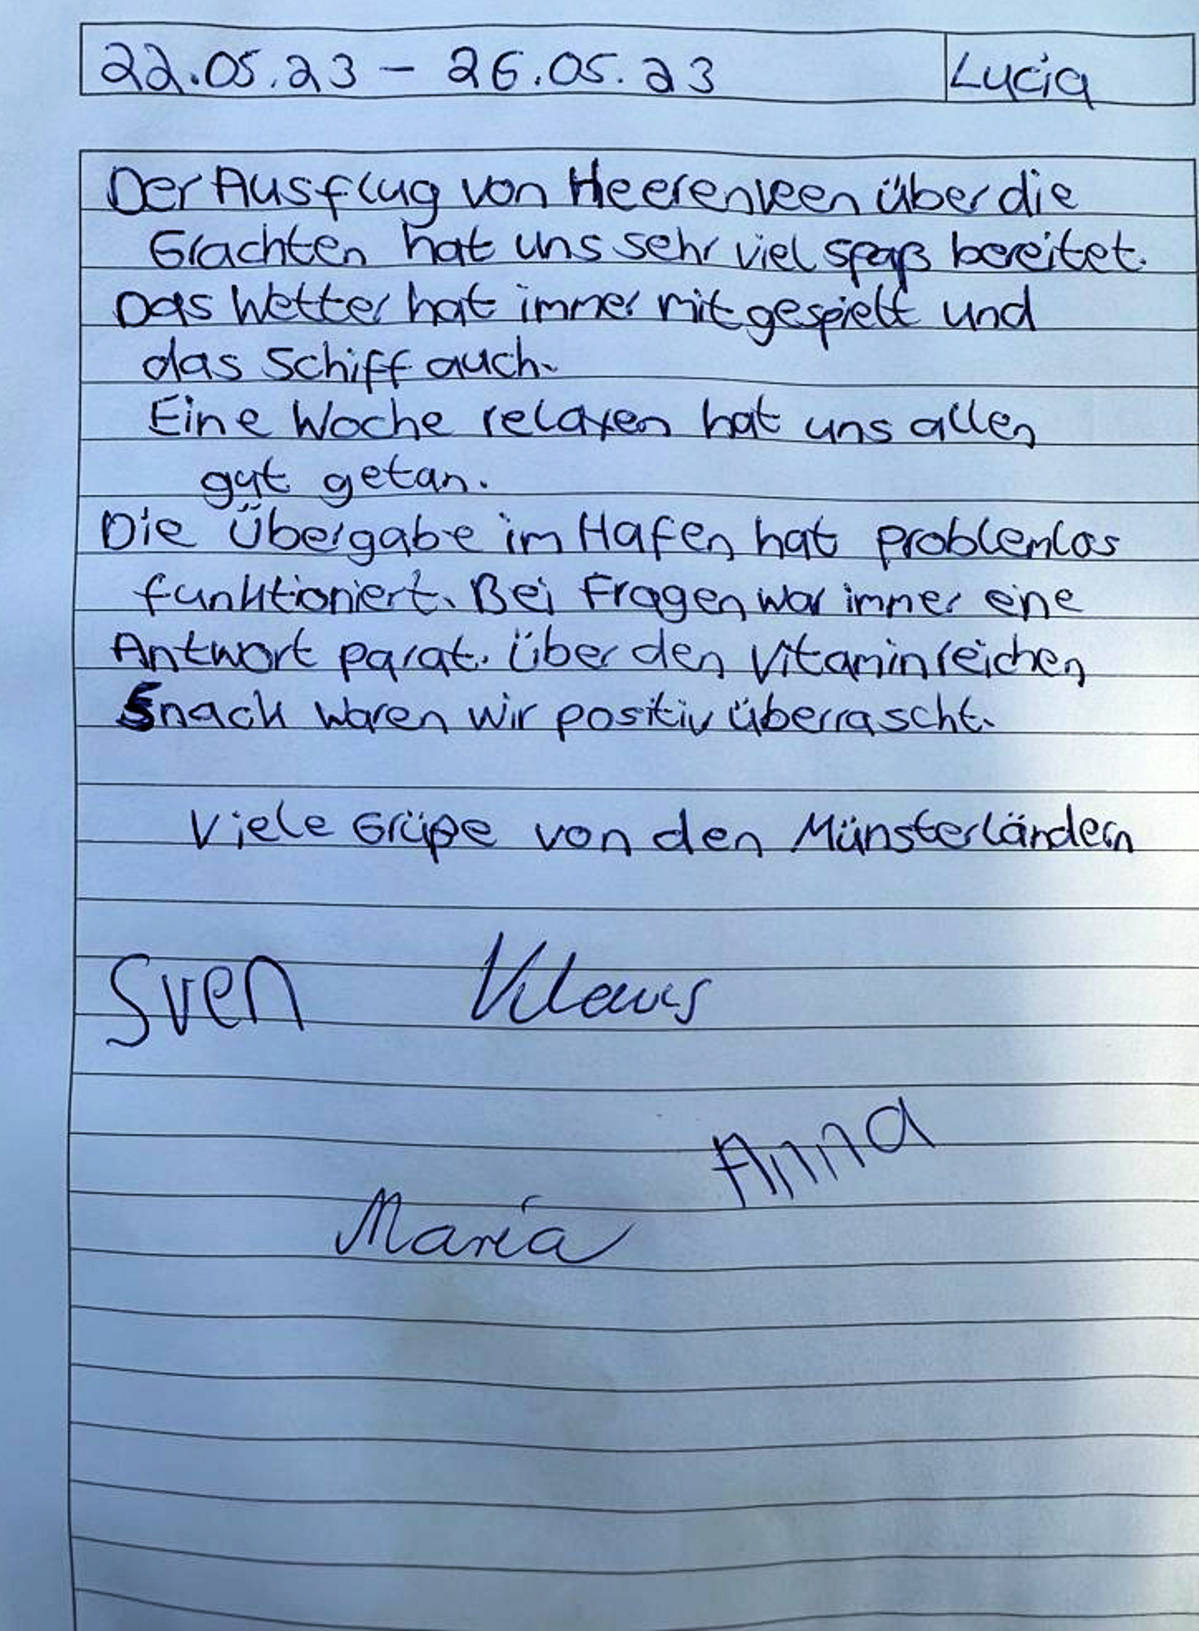 22.05.23 - 26.05.23 Lucia
Der Ausflug von Heerenveen über die
Grachten hat uns sehr viel spaß bereitet.
Das Wetter hat immer mitgespielt und
das Schiff auch.
Eine Woche relaxen hat uns allen
gut getan.
Die Übergabe im Hafen hat problemlos
funktioniert. Bei Fragen war immer eine
Antwort parat. Über den Vitaminreichen
Snack waren wir positiv überrascht.
Viele Grüße von den Münsterländern
Sven Klaus
Anna
Maria